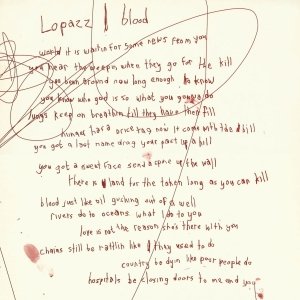 Lopazz | blood
world it is waitin for some news from you
you hear the weepin when they go for the kill
you been around now long enough to know
you know who god is so what you gonna do
lungs keep on breathin till they have their fill
hunger has a price tag now it come with the bill
you got a last name drag your past up a hill
you got a sweet face send a spine up the wall
There is land for the taken long as you can kill
blood just like oil gushing out of a well
rivers do to oceans what I do to you
love is not the reason she's there with you
chains still be rattlin like they used to do
country be dyin like poor people do
hospitals be closing doors to me and you